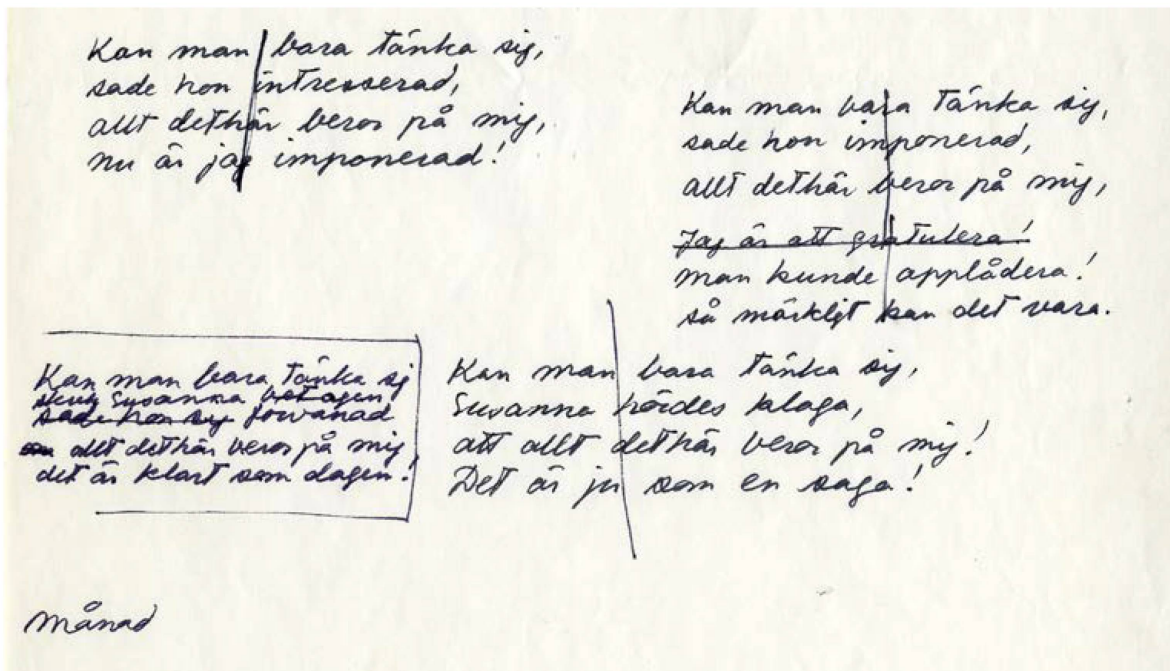 Kan man bara tänka sig,
sade hon intresserad,
allt dethär beror på mig,
nu är jag imponerad!
Kan man bara tänka sig,
sade hon imponerad,
allt dethär beror på mig,
Jag är att gratulera!
man kunde applådera!
så märkligt kan det vara.
Kan man bara tänka sig
Susanna betagen
sade hon sig förvånad
allt dethär beror på mig
det är klart som dagen!
Kan man bara tänka sig,
Susanna hördes klaga,
att allt dethär beror på mig!
Det är ju som en saga!
månad